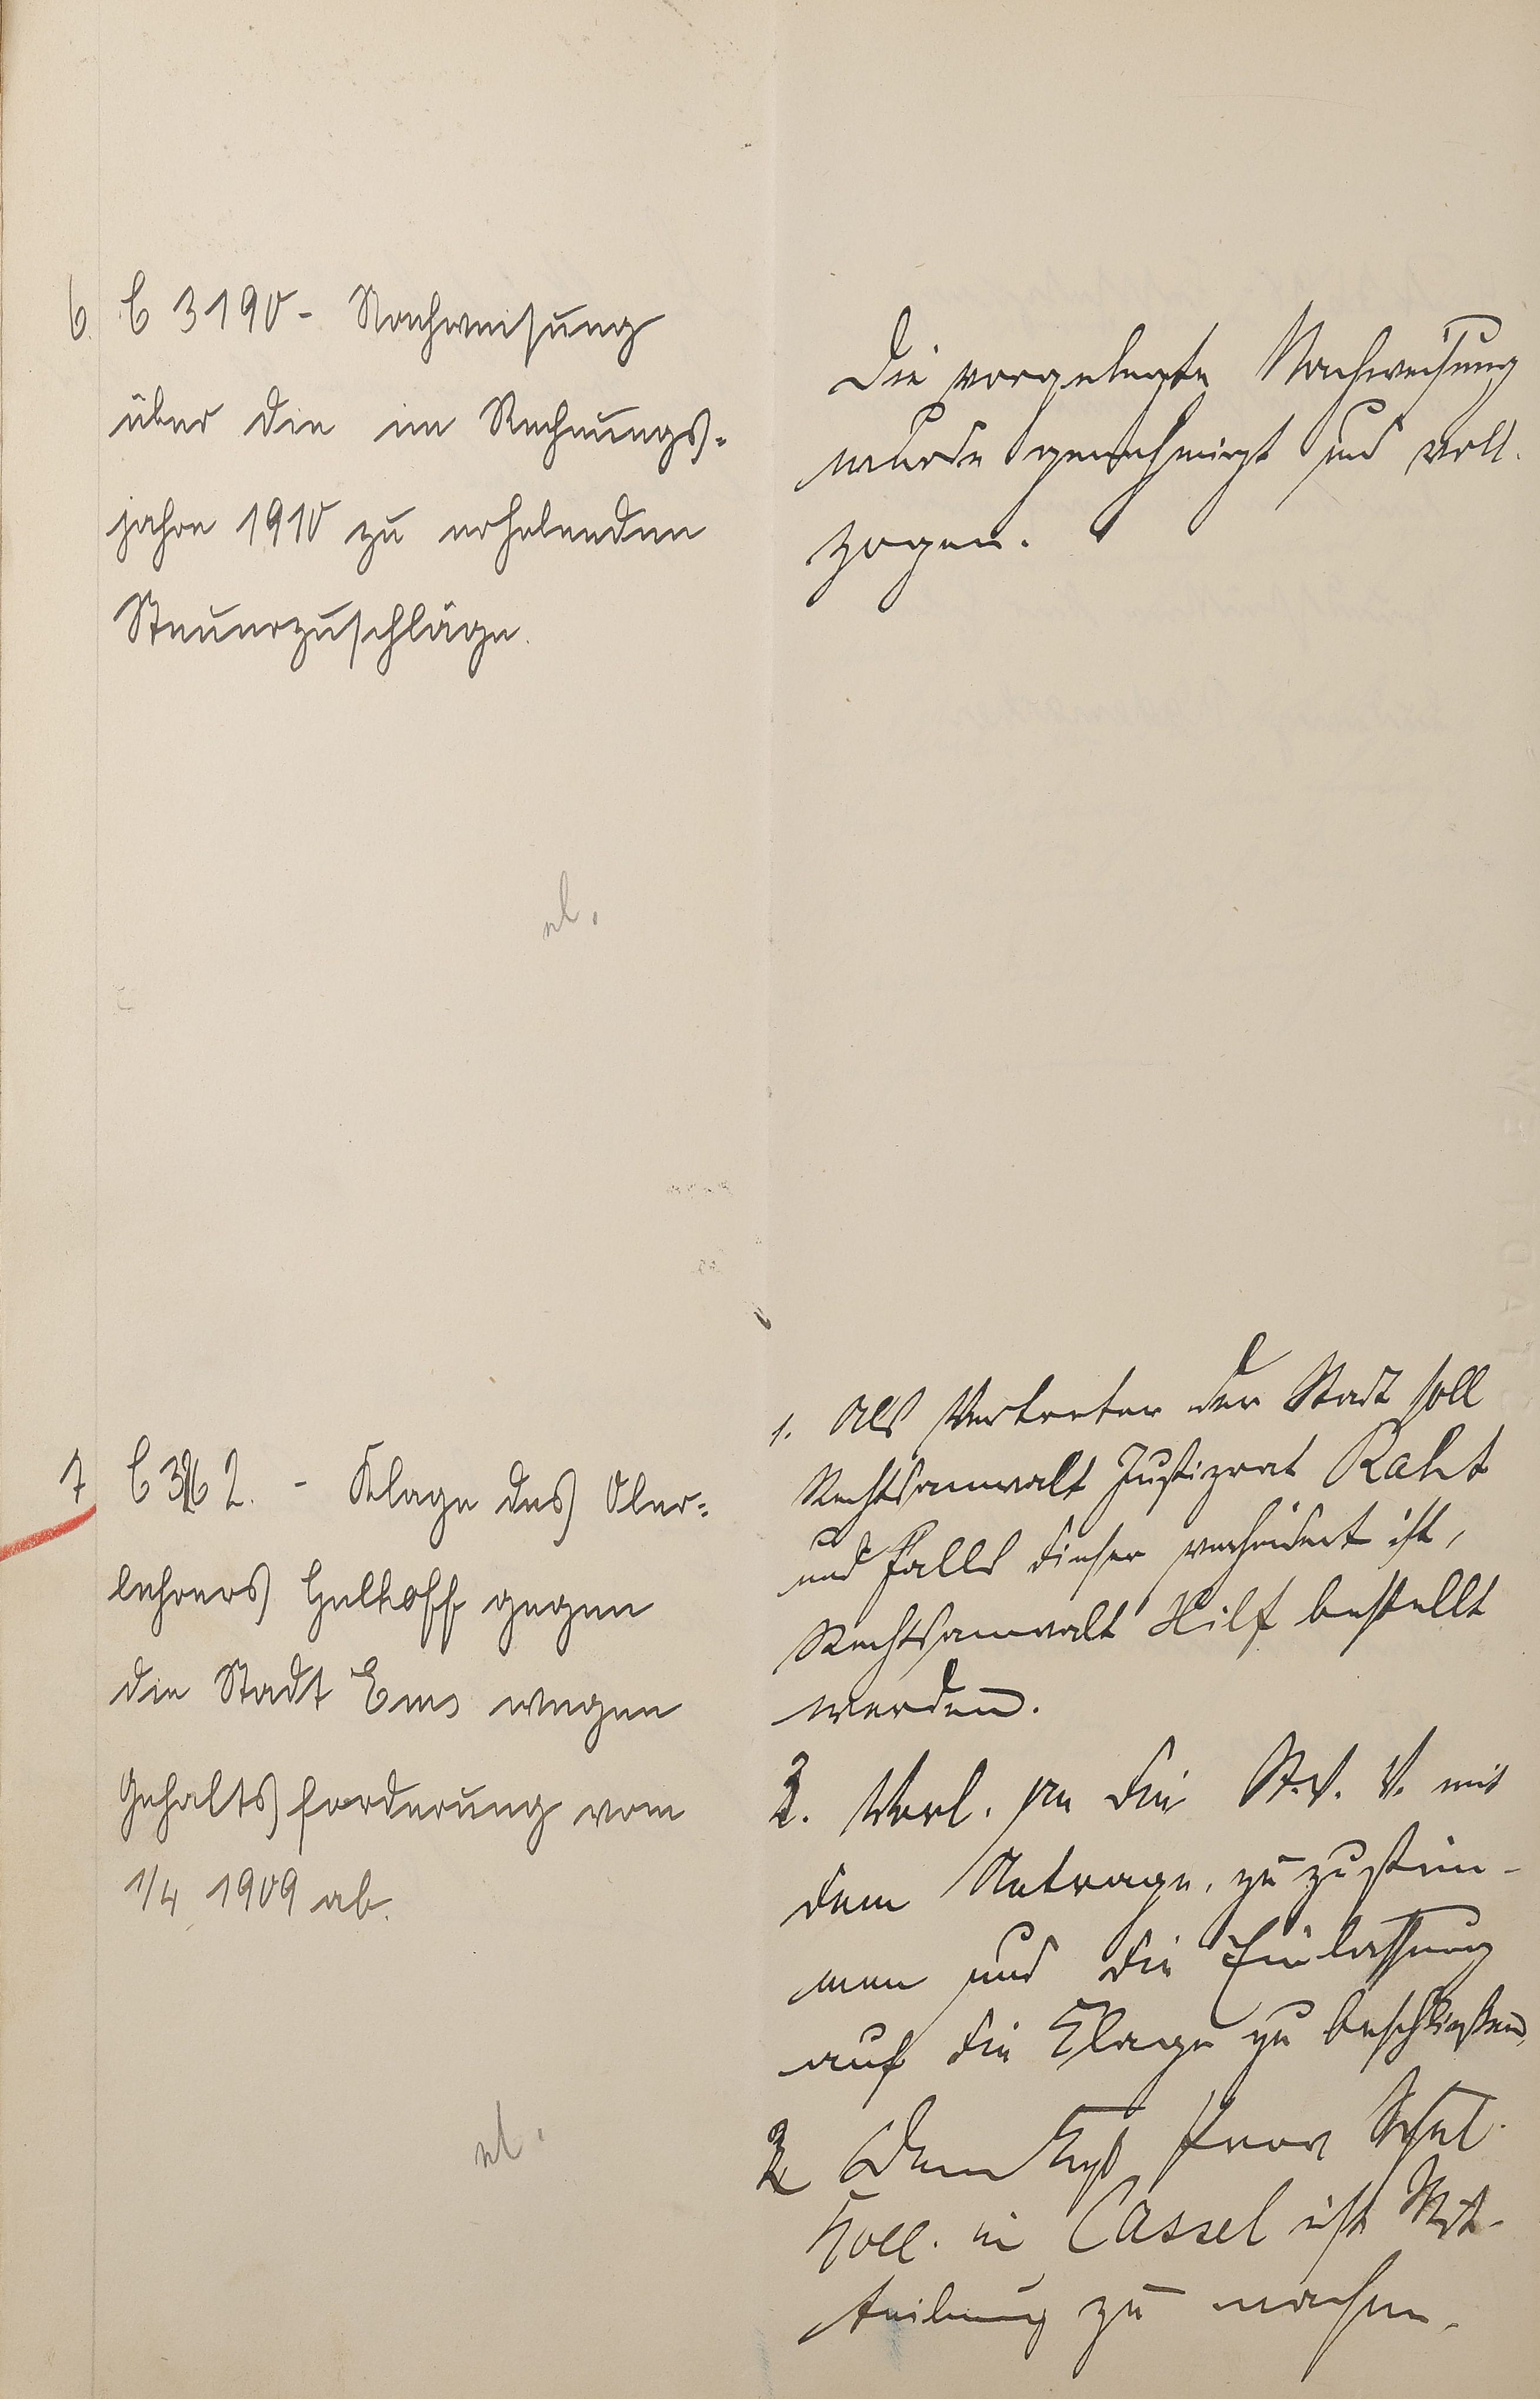 6. C 3190 - Nachweisung
über die im Rechnungs-
jahre 1910 zu erhebenden
Steuerzuschläge.
Die vorgelegte Nachweisung
wurde genehmigt und voll-
zogen.
7 C 2. - Klage des Ober-
lehrers gegen
die Stadt Ems wegen
Gehaltsforderung vom
1/4 1909 ab.
1. Als Vertreter der Stadt soll
Rechtsanwalt Justizrat Raht
und falls dieser verhindert ist,
Rechtsanwalt Hilf bestellt
werden.
2. Vorl. an die St. V. V. mit
dem Antrage, zuzustim-
men und die Einlassung
auf die Klage zu beschließen.
3 Dem Kgl. Prov. Schul
Koll. in Cassel ist Mit-
teilung zu machen.